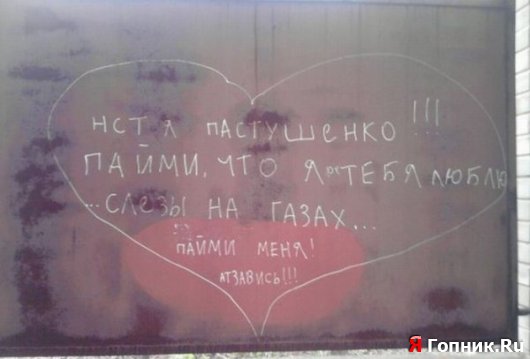 НСТЯ ПАСТУШЕНКО!!!
ПАЙМИ, ЧТО Я ТЕБЯ ЛЮБЛЮ
...СЛЕЗЫ НА ГАЗАХ...
ПАЙМИ МЕНЯ!
АТЗАВИСЬ!!!
Я Гопник.Ru